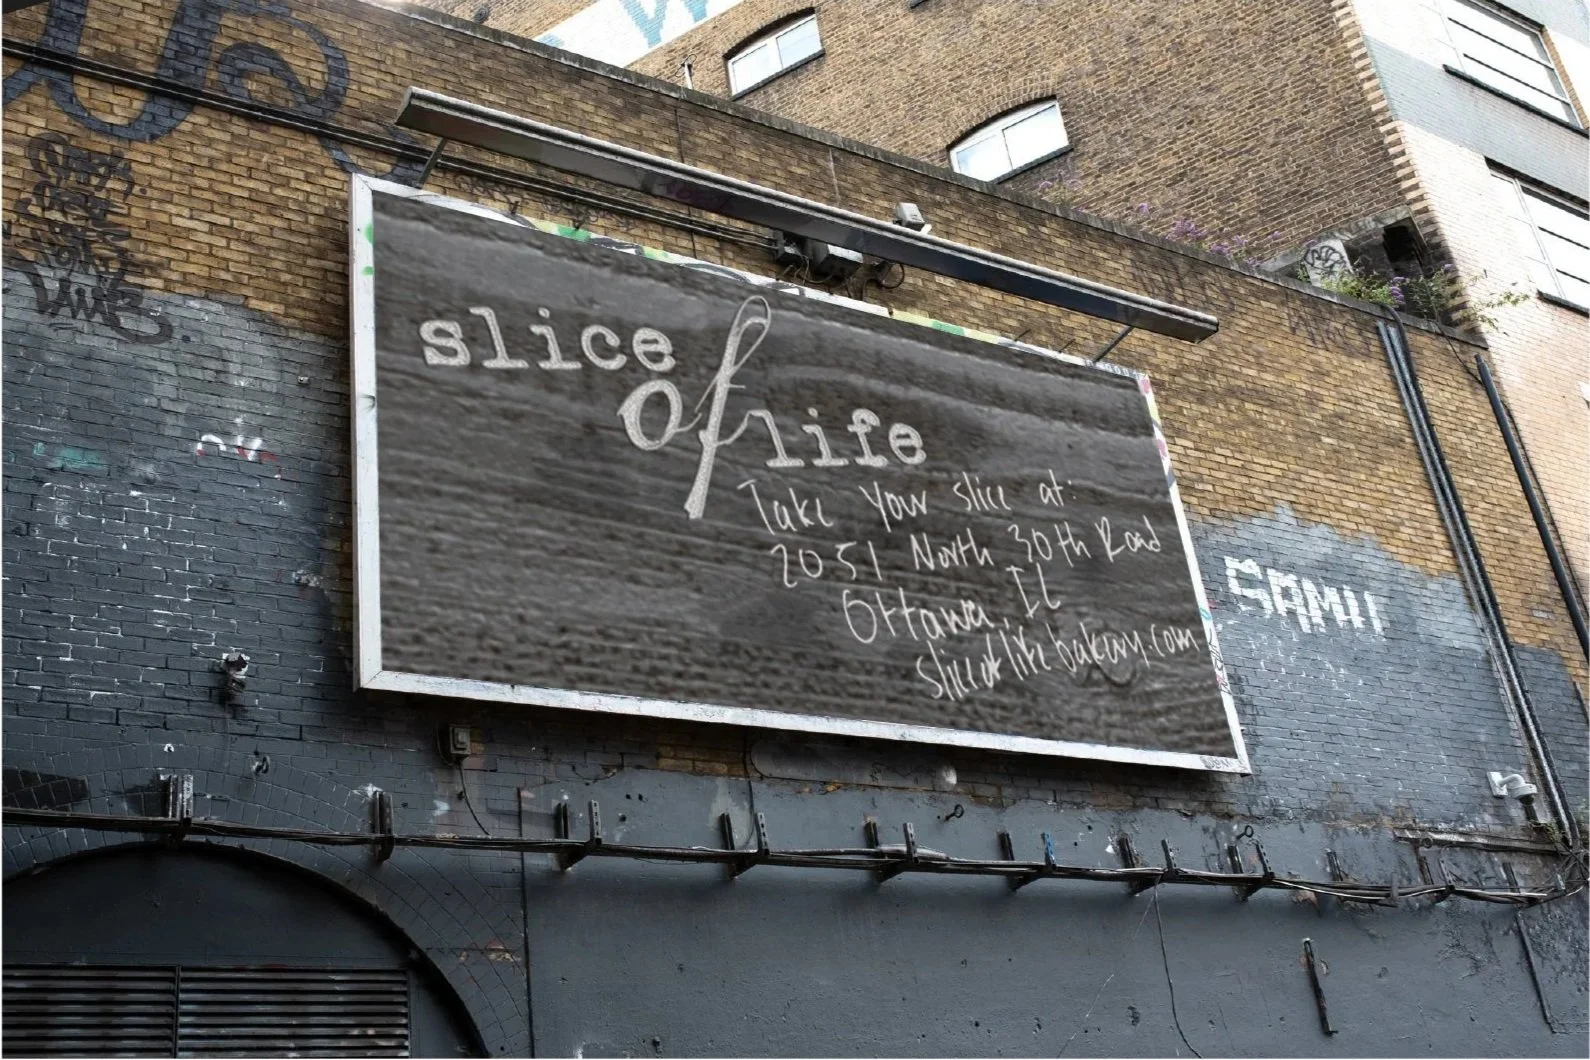 slice
of
life
Take Your slice at:
2051 North 30th Road
Ottawa, IL
sliceoflifebakery.com
SAMU